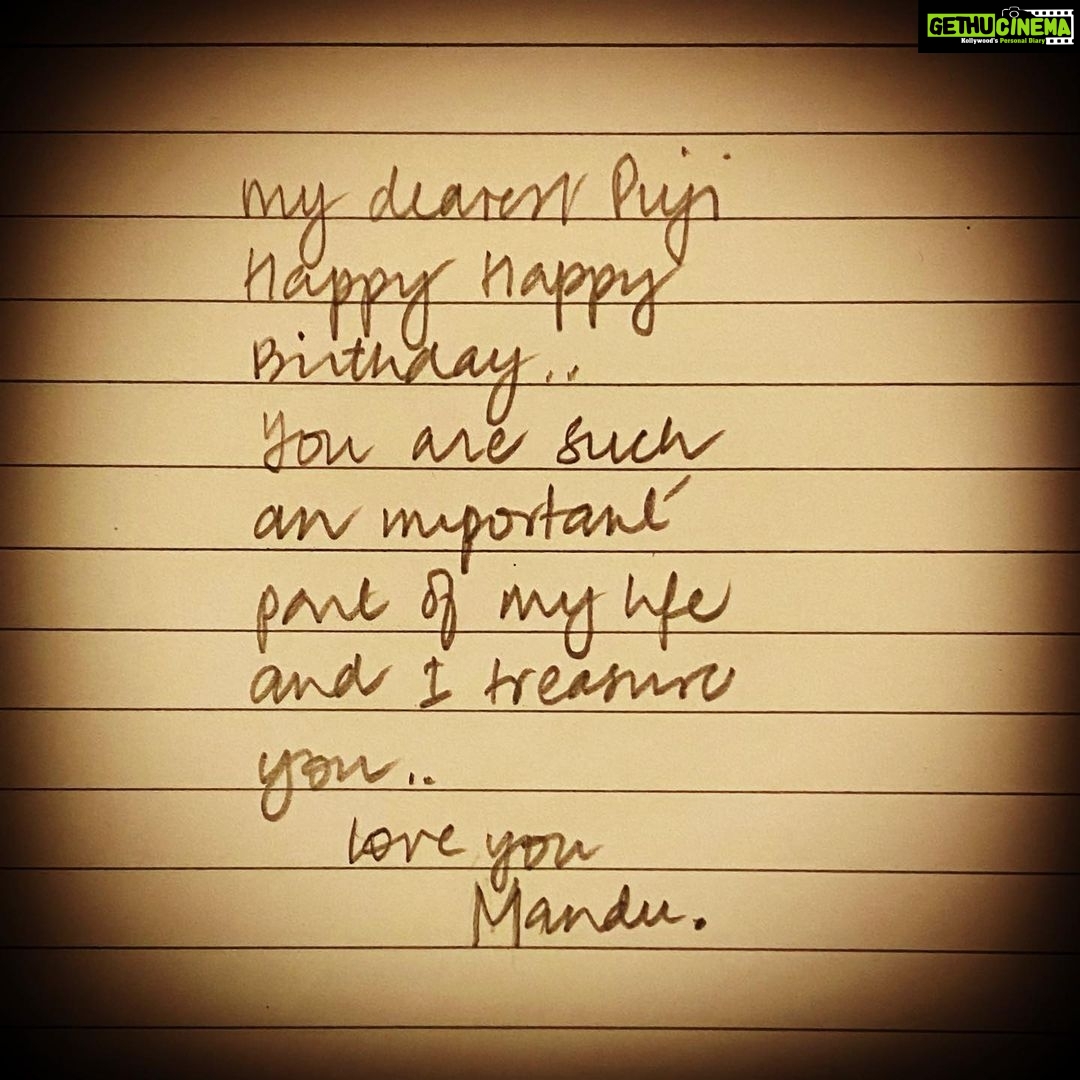 GETHUCINEMA
Kollywood's Personal Diary
my dearest Puji
Happy Happy
Birthday..
You are such
an important
part of my life
and I treasure
you..
love you
Mandu.